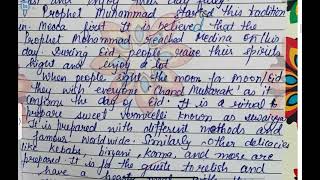 and enjoy their day
Prophet Muhammad started this tradition
in Mecca first. It is believed that the
Prophet Mohammad reached Medina on this
day. During Eid, people raise their spirits
hight and enjoy a lot
When people sight the moon for Moon Eid,
they wish everyone 'Chand Mubarak' as it
confirms the day of Eid. It is a ritual to
prepare sweet vermicelli known as sewaiyan
It is prepared with different methods and
famous worldwide. Similarly other delicacies
like kebabs, biryani, korma, and more are
prepared. It is for the guests to relish and
have a hearty meal with